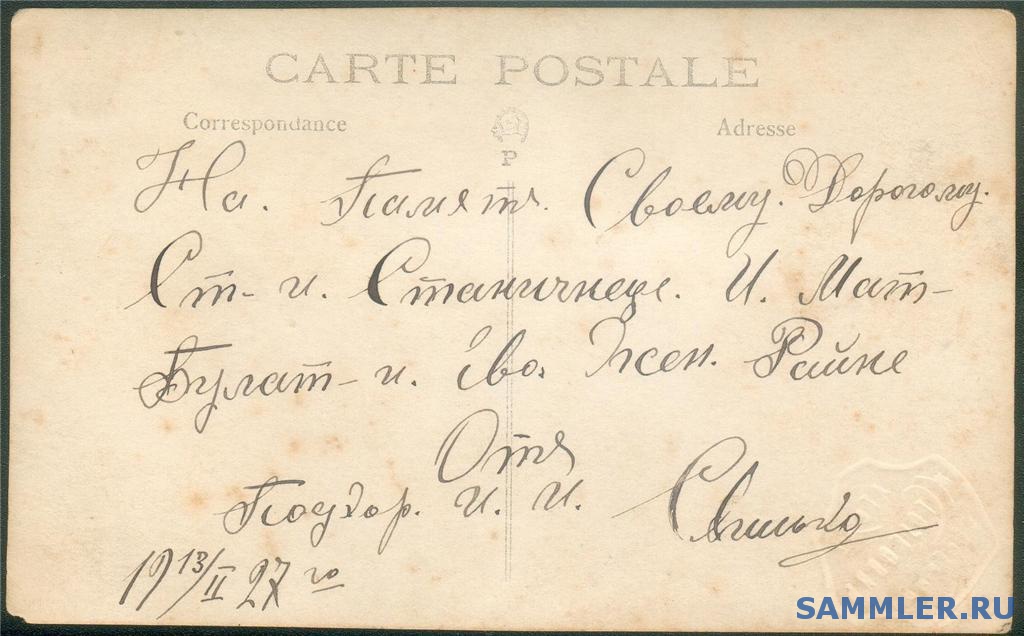 CARTE POSTALE
Correspondance
Adresse
P
На. Память. Своему. Дорогому.
Ст- и. Станичнеце. И. Мат-
Булат- и. Его. Жен. Райне
Отъ
Подхор. И. И.
19 13/II 27 го
SAMMLER.RU